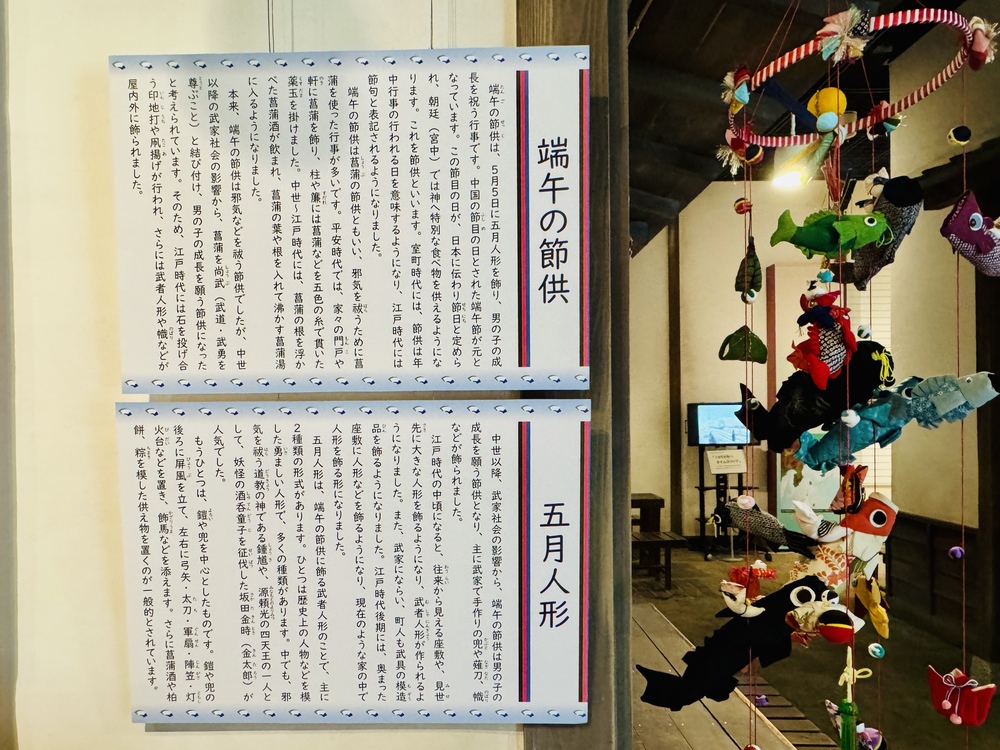 端午の節供
端午の節供は、5月5日に五月人形を飾り、男の子の成
長を祝う行事です。中国の節目の日とされた端午節が元と
なっています。この節目の日が、日本に伝わり節日と定めら
れ、朝廷（宮中）では神へ特別な食べ物を供えるようにな
ります。これを節供といいます。室町時代には、節供は年
中行事の行われる日を意味するようになり、江戸時代には
節句と表記されるようになりました。
端午の節供は菖蒲の節供ともいい、邪気を祓うために菖
蒲を使った行事が多いです。平安時代では、家々の門戸や
軒に菖蒲を飾り、柱や簾には菖蒲などを五色の糸で貫いた
薬玉を掛けました。中世～江戸時代には、菖蒲の根を浮か
べた菖蒲酒が飲まれ、菖蒲の葉や根を入れて沸かす菖蒲湯
に入るようになりました。
本来、端午の節供は邪気などを祓う節供でしたが、中世
以降の武家社会の影響から、菖蒲を尚武（武道・武勇を
尊ぶこと）と結び付け、男の子の成長を願う節供になった
と考えられています。そのため、江戸時代には石を投げ合
う印地打や凧揚げが行われ、さらには武者人形や幟などが
屋内外に飾られました。
五月人形
中世以降、武家社会の影響から、端午の節供は男の子の
成長を願う節供となり、主に武家で手作りの兜や薙刀、幟
などが飾られました。
江戸時代の中頃になると、往来から見える座敷や、見世
先に大きな人形を飾るようになり、武者人形が作られるよ
うになりました。また、武家にならい、町人も武具の模造
品を飾るようになりました。江戸時代後期には、奥まった
座敷に人形などを飾るようになり、現在のような家の中で
人形を飾る形になりました。
五月人形は、端午の節供に飾る武者人形のことで、主に
2種類の形式があります。ひとつは歴史上の人物などを模
した勇ましい人形で、多くの種類があります。中でも、邪
気を祓う道教の神である鍾馗や、源頼光の四天王の一人と
して、妖怪の酒呑童子を征伐した坂田金時（金太郎）が
人気でした。
もうひとつは、鎧や兜を中心としたものです。鎧や兜の
後ろに屏風を立て、左右に弓矢・太刀・軍扇・陣笠、灯
火台などを置き、飾馬などを添えます。さらに菖蒲酒や柏
餅、粽を模した供え物を置くのが一般的とされています。